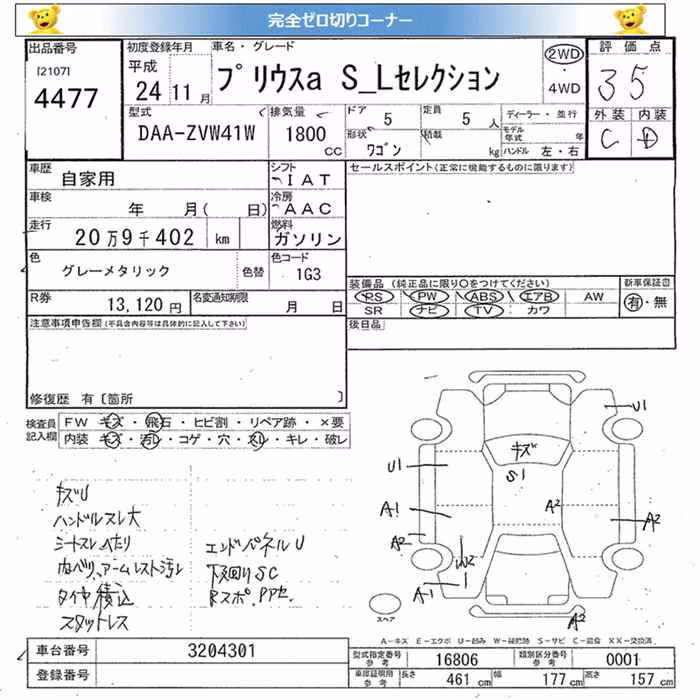 完全ゼロ切りコーナー
出品番号 初度登録年月 車名・グレード 評価点
[2107] 平成 プリウスa S_Lセレクション 2WD ・ 4WD 35
4477 24 11月
外装 内装
型式 排気量 ドア 5 定員 5人 ディーラー・並行 C D
DAA-ZVW41W 1800 CC 形状 ワゴン 積載 kg モデル年式 年 ハンドル 左・右
車歴 自家用 シフト IAT セールスポイント(正常に機能するものに限ります)
車検 年 月( 日) 冷房 AAC
走行 20万9千402 km 燃料 ガソリン
色 グレーメタリック 色替 色コード 1G3
装備品(純正品に限り○をつけてください) 新車保証書
R券 13,120円 名変通知期限 月 日 PS PW ABS エアB AW 有・無
SR ナビ TV カワ
注意事項申告欄(不具合内容等は具体的に記入して下さい) 後日品
修復歴 有〔箇所 〕
検査員記入欄 FW キズ・飛石・ヒビ割・リペア跡・×要
内装 キズ・汚レ・コゲ・穴・スレ・キレ・破レ
U1
キズ
S1
U1
A1
A2
A2
A2
W2
A1
A2
スペア
キズU
ハンドルスレ大
シートスレへたり
内ベリ、アームレスト汚レ
タイヤ積込
スタットレス
エンドパネルU
下回りSC
Rスポ、PPセ
A-キズ E-エクボ U-凹み W-補修跡 S-サビ C-腐食 XX-交換済
車台番号 3204301 型式指定番号 参考 16806 類別区分番号 参考 0001
登録番号 車庫証明用 参考 長さ 461 cm 幅 177 cm 高さ 157 cm